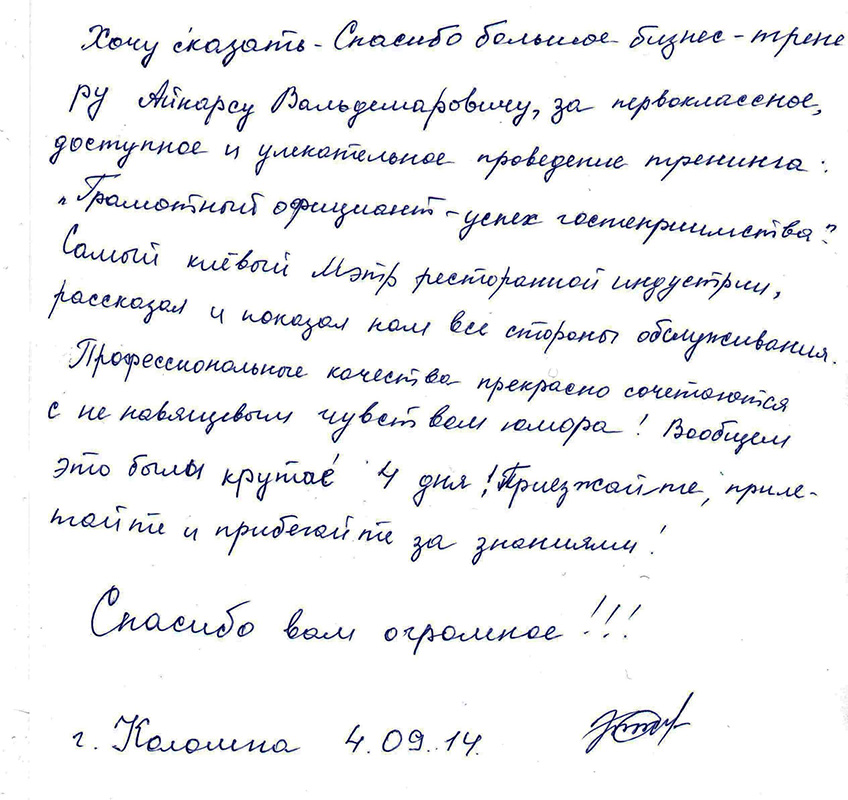 Хочу сказать - Спасибо большое бизнес - трене
ру Айнарсу Вальдемаровичу, за первоклассное,
доступное и увлекательное проведение тренинга:
„Грамотный официант - успех гостеприимства?
Самый клёвый Мэтр ресторанной индустрии,
рассказал и показал нам все стороны обслуживания.
Профессиональные качества прекрасно сочетаются
с не навящевым чувством юмора! Вообщем
это были крутые 4 дня! Приезжайте, приле-
тайте и прибегайте за знаниями!
Спасибо вам огромное!!!
г. Коломна 4.09.14.